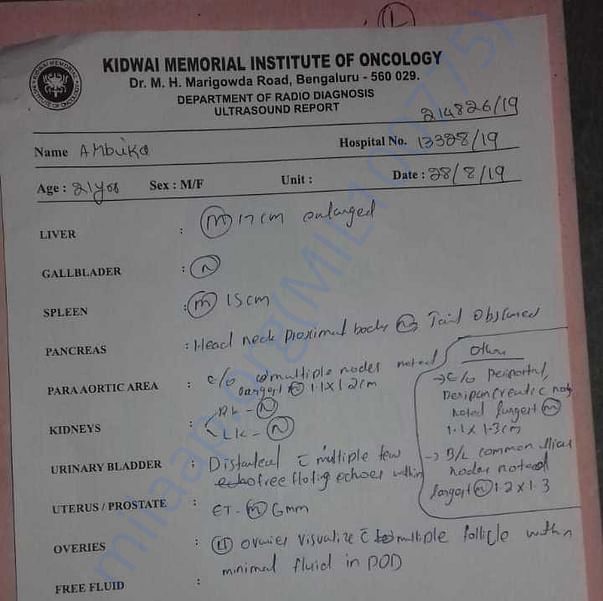 KIDWAI MEMORIAL INSTITUTE OF ONCOLOGY
Dr. M. H. Marigowda Road, Bengaluru - 560 029.
DEPARTMENT OF RADIO DIAGNOSIS
ULTRASOUND REPORT
214826/19
Name Ambika Hospital No. 13328/19
Age : 21yrs Sex : M/F Unit : Date : 28/8/19
LIVER : (m) 17cm enlarged
GALLBLADER : (N)
SPLEEN : (m) 15cm
PANCREAS : Head neck proximal body (N), Tail Obscured
PARA AORTIC AREA : e/o multiple nodes noted
largest (m) 1.1 x 1.2cm
KIDNEYS : RK - (N)
LK - (N)
URINARY BLADDER : Distended c̄ multiple few
free floting echoes within
UTERUS / PROSTATE : ET - (m) 6mm
OVERIES : ovaries visualize c̄ multiple follicle within
FREE FLUID : minimal fluid in POD
Other
→ e/o periportal,
peripancreatic node
noted largest (m)
1.1 x 1.3cm
→ B/L common illiac
nodes noted
largest (m) 1.2 x 1.3
milaap.org